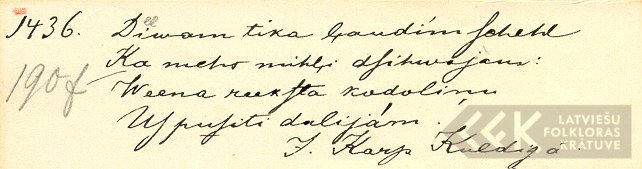 1436. Deewam tika laudim schehl
190f Ka mehs mihļi dsihwojam:
Weena reeksta kodoliņu
Us pusiti dalijám.
J. Karp Kuldigā
LATVIEŠU
FOLKLORAS
KRĀTUVE